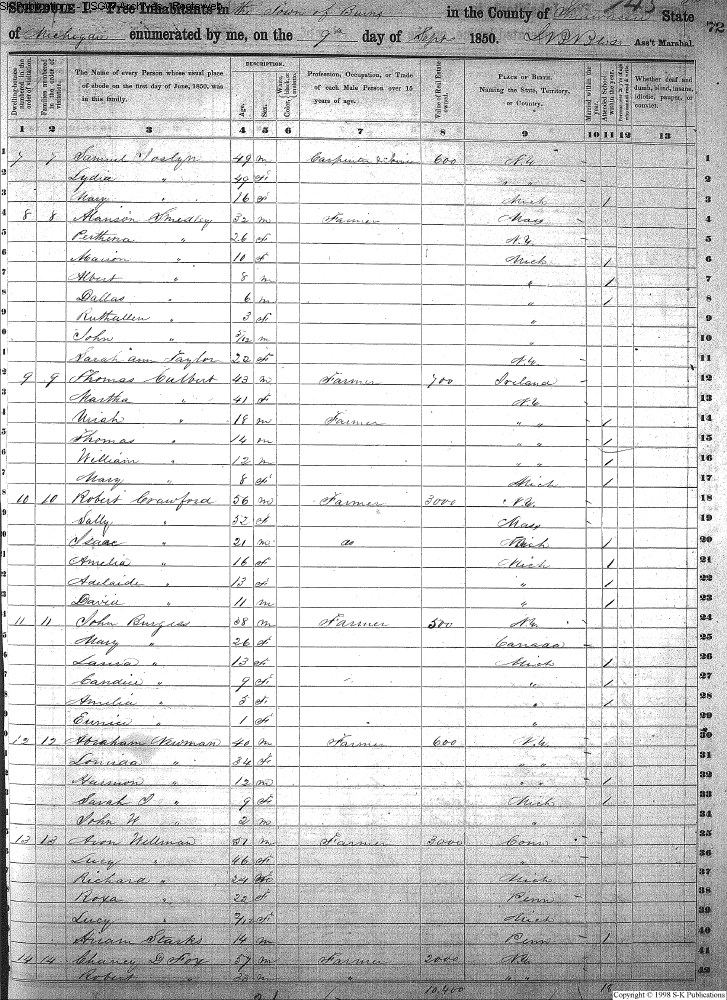 SCHEDULE I. Free Inhabitants in the Town of Burns in the County of State
of Michigan enumerated by me, on the 9th day of Sept 1850. Ass't Marshal. 72
Dwelling-houses numbered in the order of visitation.
Families numbered in the order of visitation.
The Name of every Person whose usual place of abode on the first day of June, 1850, was in this family.
DESCRIPTION.
Age.
Sex.
Color, White, black or mulatto.
Profession, Occupation, or Trade of each Male Person over 15 years of age.
Value of Real Estate owned.
PLACE OF BIRTH. Naming the State, Territory, or Country.
Married within the year.
Attended School within the year.
Whether deaf and dumb, blind, insane, idiotic, pauper, or convict.
1 2 3 4 5 6 7 8 9 10 11 12 13
7 7 Samuel Joslyn 49 m Carpenter & 600 N.Y. 1
Lydia " 49 f " " 2
Mary " 16 f Mich 1 3
8 8 Alanson Smedley 32 m Farmer Mass 4
Perthena " 26 f N.Y. 5
Marion " 10 f Mich 1 6
Albert " 8 m " 1 7
Dallas " 6 m " 1 8
Ruthallen " 3 f " 9
John " /12 m " 10
Sarah Ann Taylor 22 f N.Y. 11
9 9 Thomas Cutbert 43 m Farmer 700 Ireland 12
Martha " 41 f N.Y. 13
Uriah " 18 m Farmer " " 1 14
Thomas " 14 m " " 1 15
William " 12 m " " 1 16
Mary " 8 f Mich 1 17
10 10 Robert Crawford 56 m Farmer 3000 N.Y. 18
Sally " 52 f Mass 19
Isaac " 21 m do Mich 1 20
Amelia " 16 f Mich 1 21
Adelaide " 13 f " 1 22
David " 11 m " 1 23
11 11 John Burgess 38 m Farmer 500 N.Y. 24
Mary " 26 f Canada 25
Laura " 13 f Mich 1 26
Candice " 9 f " 1 27
Amelia " 5 f " 1 28
Eunice " 1 f " 29
12 12 Abraham Newman 40 m Farmer 600 N.Y. 30
Louida " 34 f " " 31
Harmon " 12 m " " 1 32
Sarah J " 9 f Mich 1 33
John W " 2 m " 34
13 13 Aron Wellman 51 m Farmer 3000 Conn 35
Lucy " 46 f " 36
Richard " 24 m Mich 37
Roxa " 22 f Penn 38
Lucy " /12 f Mich 39
Hiram Starks 14 m Penn 1 40
14 14 Chancy D Fox 57 m Farmer 2000 N.Y. 41
Robert " m " " " 42
10,400 18
Copyright © 1998 S-K Publications